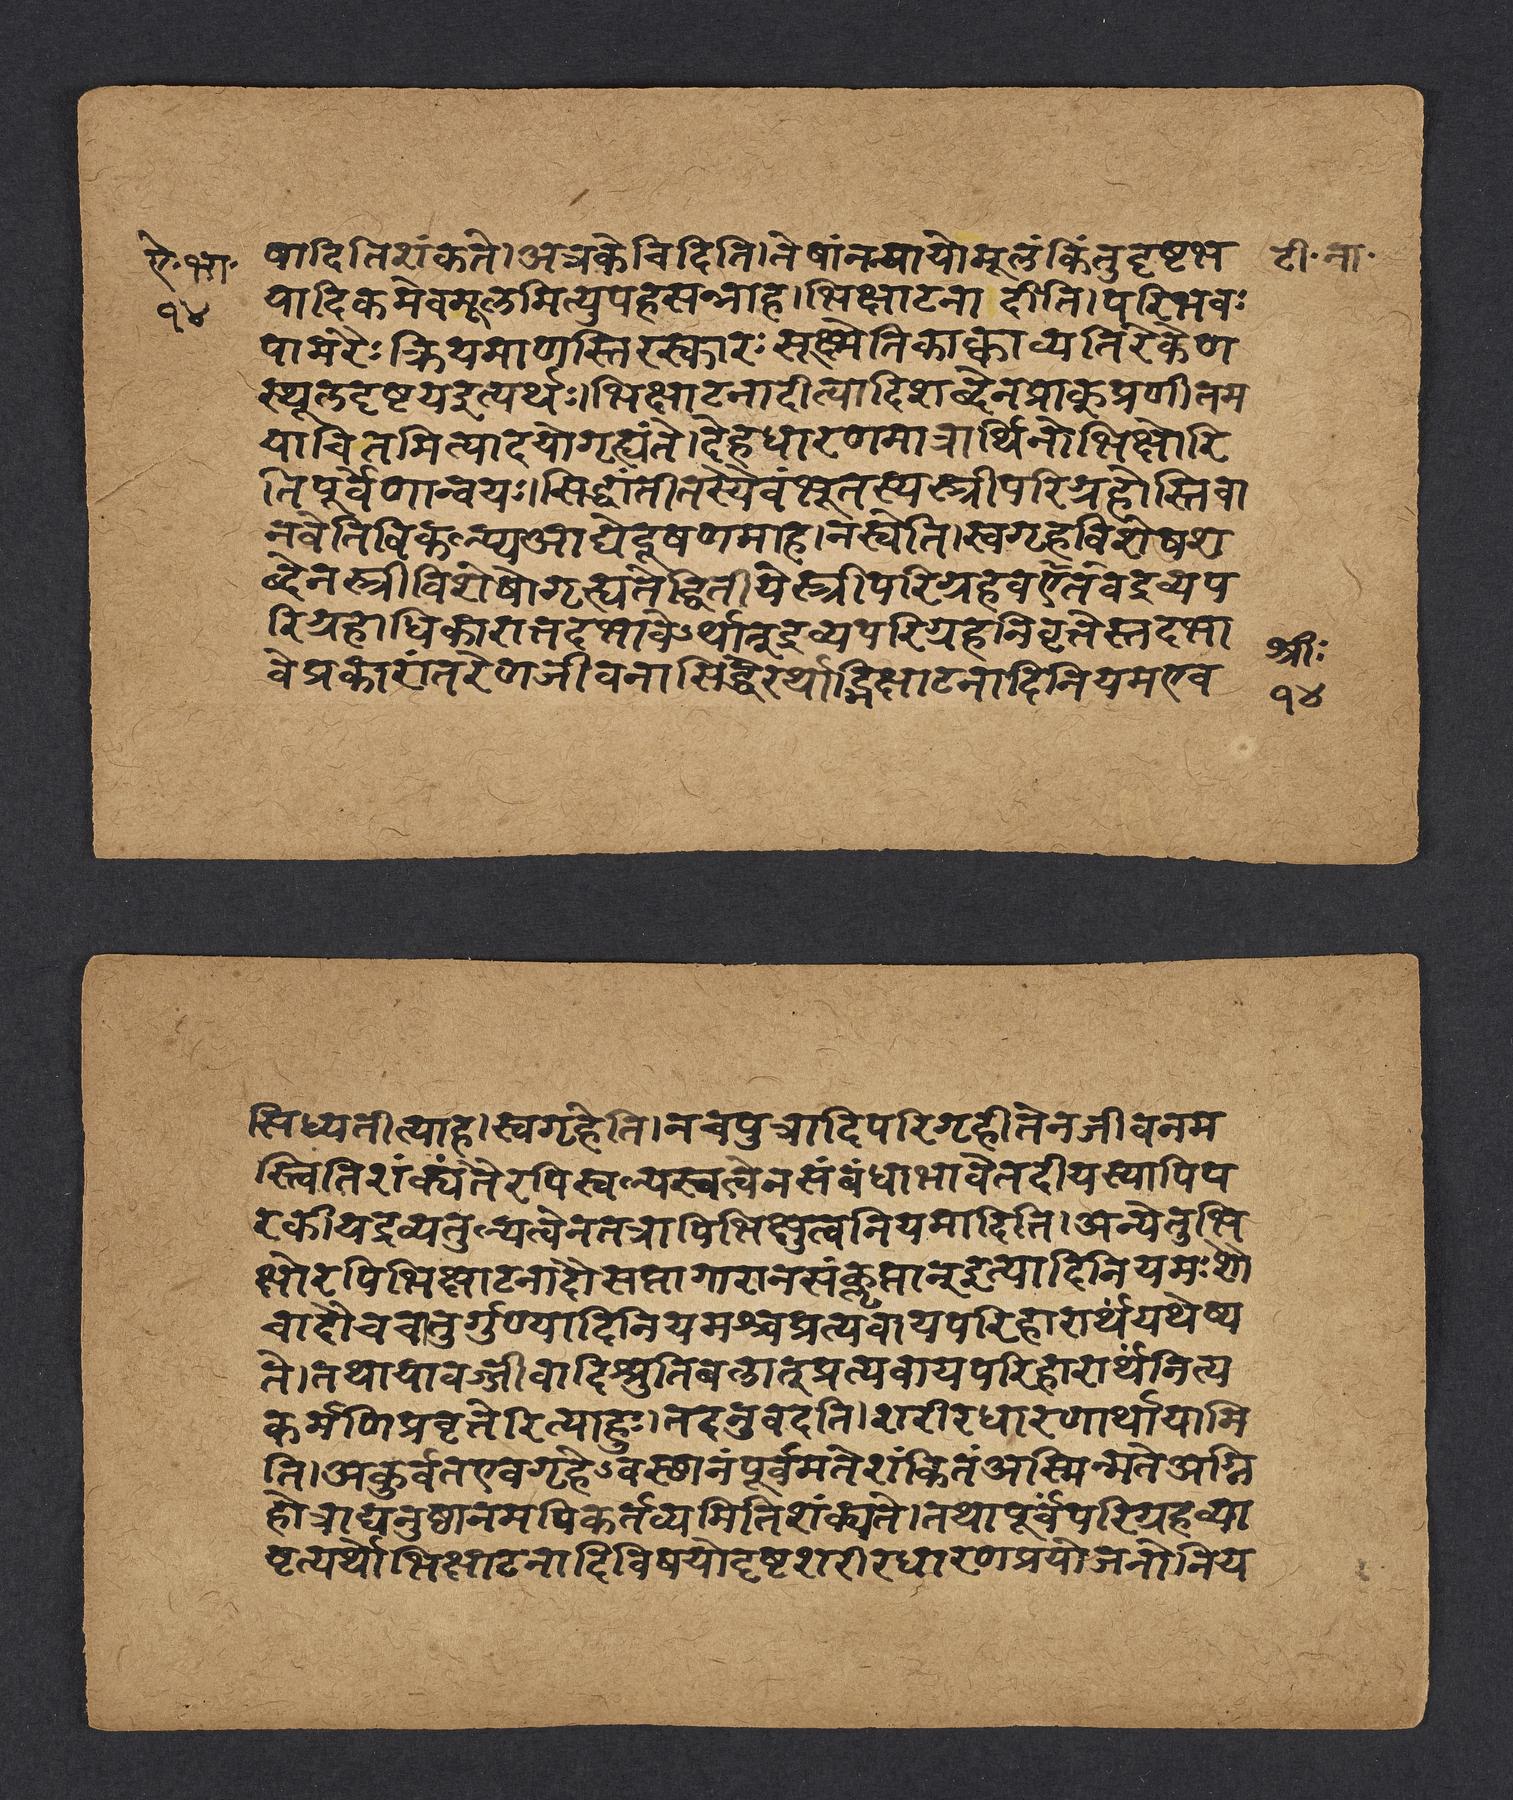 ऐ·भा·
१४
टी·ना·
षादितिशंकते।अत्रकेचिदिति।तेषांनन्यायोमूलंकिंतुदृष्टभ
यादिकमेवमूलमित्युपहसन्नाह।भिक्षाटनादीति।परिभवः
पामरैः क्रियमाणस्तिरस्कारः सूक्ष्मेतिकाक्वाव्यतिरेकेण
स्थूलदृष्टयइत्यर्थः।भिक्षाटनादीत्यादिशब्देनप्राक्प्रणीतम
याचितमित्यादयोगृह्यंते।देहधारणमात्रार्थिनोभिक्षोरि
तिपूर्वेणान्वयः।सिद्धांतीतस्यैवंभूतस्यस्त्रीपरिग्रहोस्तिवा
नवेतिविकल्प्यआद्येदूषणमाह।नस्वेति।स्वगृहविशेषश
ब्देनस्त्रीविशेषोगृह्यतेद्वितीयेस्त्रीपरिग्रहवऐतवेद्रव्यप
रिग्रहाधिकारात्तदभावेऽर्थात्द्रव्यपरिग्रहनिवृत्तेस्तदभा
वेप्रकारांतरेणजीवनासिद्धेरर्थाद्भिक्षाटनादिनियमएव
श्रीः
१४
सिध्यतीत्याह।स्वगृहेति।नचपुत्रादिपरिगृहीतेनजीवनम
स्त्वितिशंक्यंतेरपिस्वल्पस्वत्वेनसंबंधाभावेतदीयस्यापिप
रकीयद्रव्यतुल्यत्वेनतत्रापिभिक्षुत्वनियमादिति।अन्येतुभि
क्षोरपिभिक्षाटनादौसप्तागारानसंक्लृप्तान्इत्यादिनियमःशौ
चादौचचातुर्गुण्यादिनियमश्चप्रत्यवायपरिहारार्थंयथेष्य
ते।तथायावज्जीवादिश्रुतिबलात्प्रत्यवायपरिहारार्थंनित्य
कर्मणिप्रवृत्तेरित्याहुः।तदनुवदति।शरीरधारणार्थायामि
ति।अकुर्वतएवगृहेऽवस्छानंपूर्वमतेशंकितंअस्मिन्मतेअग्नि
होत्राद्यनुष्ठानमपिकर्तव्यमितिशंक्यते।तथापूर्वंपरिग्रहव्या
वृत्यर्थोभिक्षाटनादिविषयोदृष्टशरीरधारणप्रयोजनोनिय